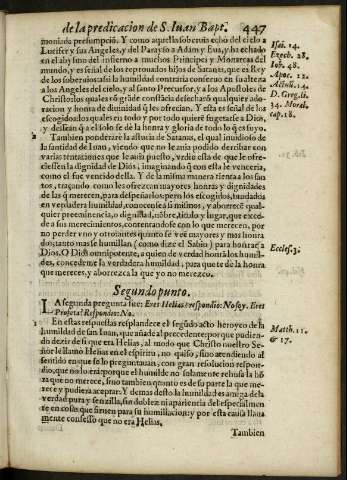 de la predicacion de S. Iuan Bapt. 447
moniada presumpció. Y como aquesta soberuia echó del cielo a
Lucifer y sus Angeles, y del Parayso a Adam y Eua, y ha echado
en el abysmo del infierno a muchos Principes y Monarcas del
mundo, y es señal de los reprouados hijos de Satanas, que es Rey
de los soberuios: assi la humildad contraria conseruo en su alteza
a los Angeles del cielo, y al santo Precursor, y a los Apostoles de
Christo: los quales có gráde constácia desechará qualquier ado-
racion y honra de diuinidad q̃ les ofrecian. Y esta es señal de los
escogidos: los quales en todo y por todo quieré sugetarse a Dios,
y dessean q̃ a el solo se de la honra y gloria de todo lo q̃ es suyo.
Tambien ponderaré la astucia de Satanas, el qual inuidioso de
la santidad de Iuan, viendo que no le auia podido derribar con
varias tentaciones que le auia puesto, vrdio esta de que le ofre-
ciessen la dignidad de Dios, imaginando q̃ con esta le venceria,
como el fue vencido della. Y de la misma manera tienta a los san
tos, traçando como les ofrezcan mayores honras y dignidades
de las q̃ merecen, para despeñarlos: pero los escogidos, fundados
en verdadera humildad, conociédose a si mismos, y aborrecé qual-
quier preeminencia, o dignidad, nóbre, titulo, y lugar, que exced-
de a sus merecimientos, contentandose con lo que merecen, por
no perder vno y otro: antes quanto se veé mayores y mas honra
dos, tanto mas se humillan (como dize el Sabio) para honrar a
Dios. O Dios omnipotente, a quien de verdad honrá los humil-
des, concedeme la verdadera humildad, para que te de la honra
que mereces, y aborrezca la que yo no merezco.
Segundo punto.
LA segunda pregunta fue: Eres Helias? respondio: No soy. Eres
Profeta? Respondio: No.
En estas respuestas resplandece el segúdo acto heroyco de la
humildad de san Iuan, que añade al precedente: porque pudien-
do dezir de si que era Helias, al modo que Christo nuestro Se-
ñor le llamó Helias en el espiritu, no quiso, sino atendiendo al
sentido en que se lo preguntauan, con gran resolucion respon-
dio, que no lo era: porque el humilde no solamente rehusa la hó
ra que no merece, sino tambien quanto es de su parte la que me-
rece y pudiera aceptar: Y demas desto la humildad es amiga de la
verdad pura y senzilla, sin doblez ni apariencia della: especialmen
te en cosas que siruen para su humillacion: y por esta causa llana
mente confesso que no era Helias.
Tambien
Isai. 14.
Ezech. 28.
Iob. 48.
Apoc. 12.
Act. 14.
D. Greg. li.
34. Moral.
cap. 18.
Eccles. 3.
Math. 11.
& 17.